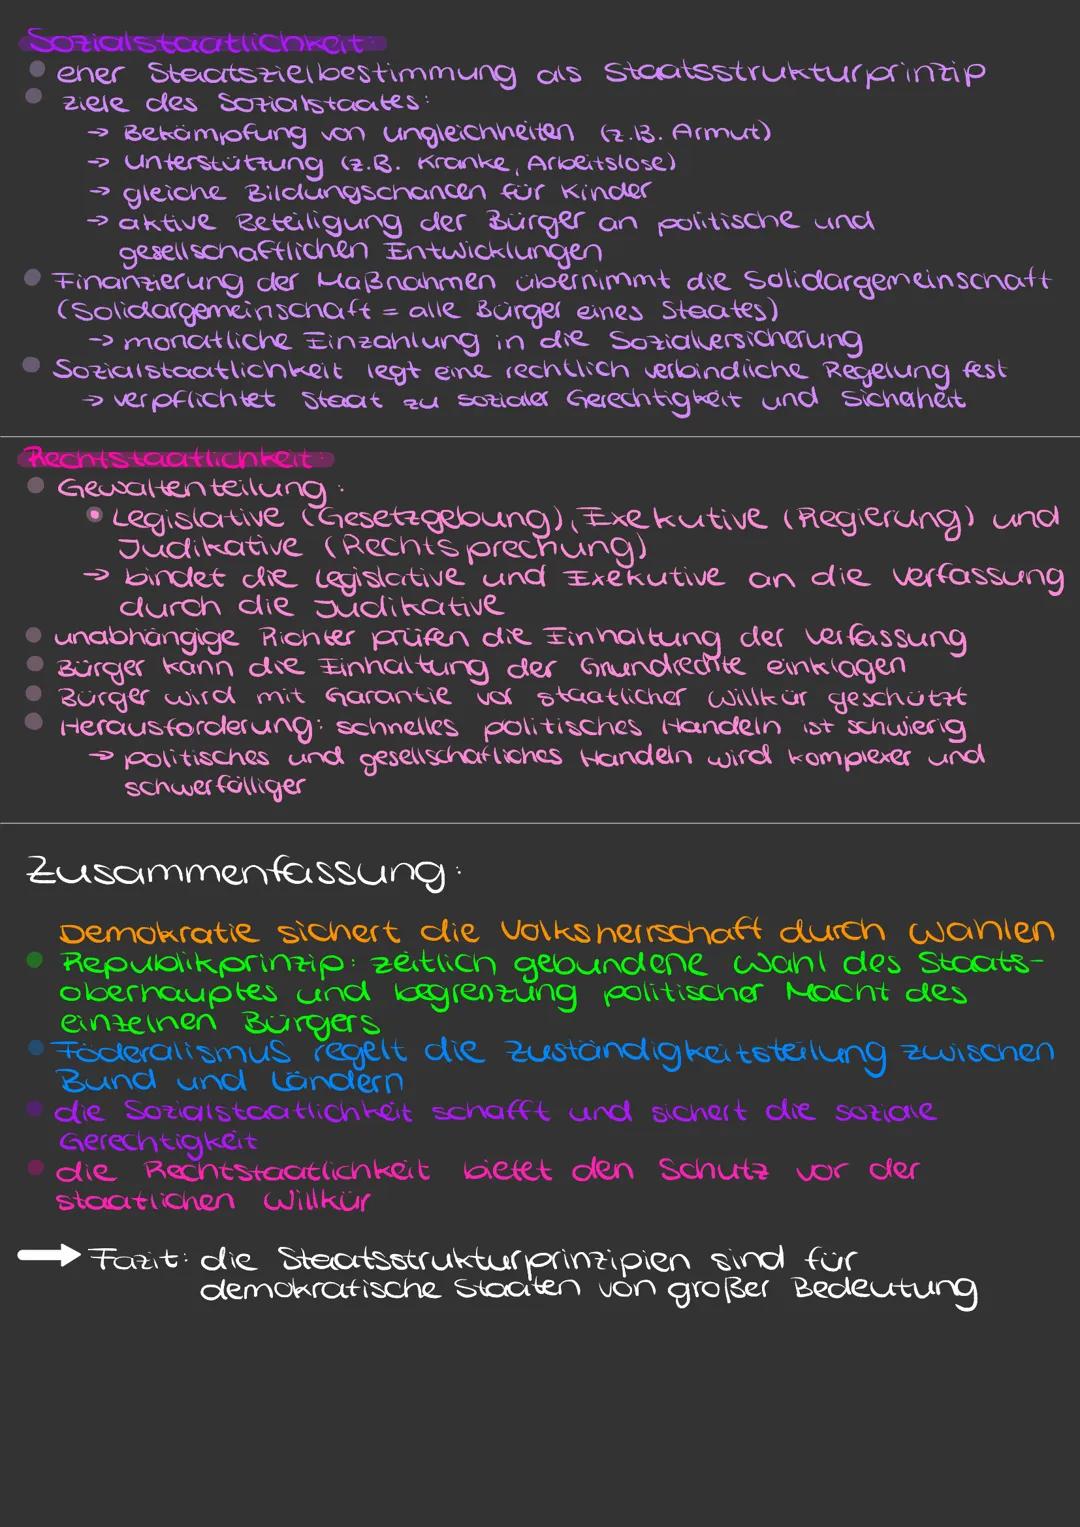 Sozialstaatlichkeit:
• eher Staatszielbestimmung als Staatsstrukturprinzip
• Ziele des Sozialstaates:
→ Bekämpfung von Ungleichheiten (z.B. Armut)
→ Unterstützung (z.B. Kranke, Arbeitslose)
→ gleiche Bildungschancen für Kinder
→ aktive Beteiligung der Bürger an politische und
gesellschaftlichen Entwicklungen
• Finanzierung der Maßnahmen übernimmt die Solidargemeinschaft
(Solidargemeinschaft = alle Bürger eines Staates)
→ monatliche Einzahlung in die Sozialversicherung
• Sozialstaatlichkeit legt eine rechtlich verbindliche Regelung fest
→ verpflichtet Staat zu sozialer Gerechtigkeit und Sicherheit
Rechtstaatlichkeit:
• Gewaltenteilung:
• Legislative (Gesetzgebung), Exekutive (Regierung) und
Judikative (Rechtsprechung)
→ bindet die Legislative und Exekutive an die Verfassung
durch die Judikative
• unabhängige Richter prüfen die Einhaltung der Verfassung
• Bürger kann die Einhaltung der Grundrechte einklagen
• Bürger wird mit Garantie vor staatlicher Willkür geschützt
• Herausforderung: schnelles politisches Handeln ist schwierig
→ politisches und gesellschaftliches Handeln wird komplexer und
schwerfälliger
Zusammenfassung:
Demokratie sichert die Volksherrschaft durch Wahlen
• Republikprinzip: zeitlich gebundene Wahl des Staats-
oberhauptes und begrenzung politischer Macht des
einzelnen Bürgers
• Föderalismus regelt die Zuständigkeitsteilung zwischen
Bund und Ländern
• die Sozialstaatlichkeit schafft und sichert die soziale
Gerechtigkeit
• die Rechtstaatlichkeit bietet den Schutz vor der
staatlichen Willkür
→ Fazit: die Staatsstrukturprinzipien sind für
demokratische Staaten von großer Bedeutung